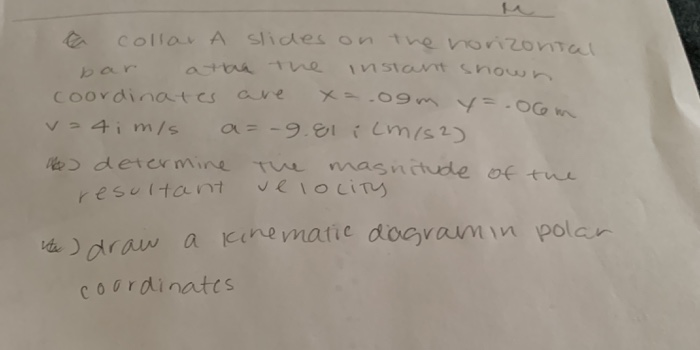 collar A slides on the horizontal
bar the instant shown
coordinates are x = .09m y = .06m
v = 4i m/s a = -9.81 i (m/s2)
) determine the magnitude of the
resultant velocity
) draw a kinematic dagram in polar
coordinates